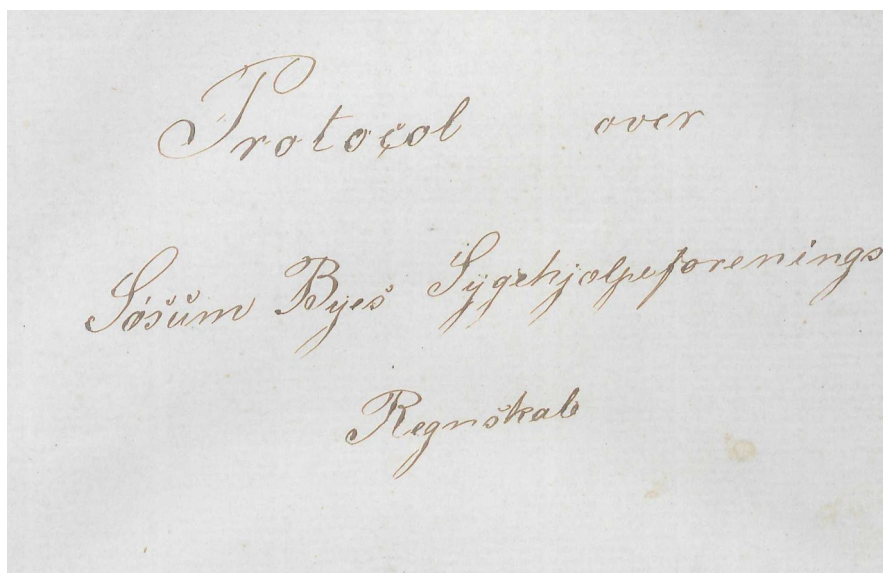 Protocol over
Søsum Byes Sygehjælpeforenings
Regnskab